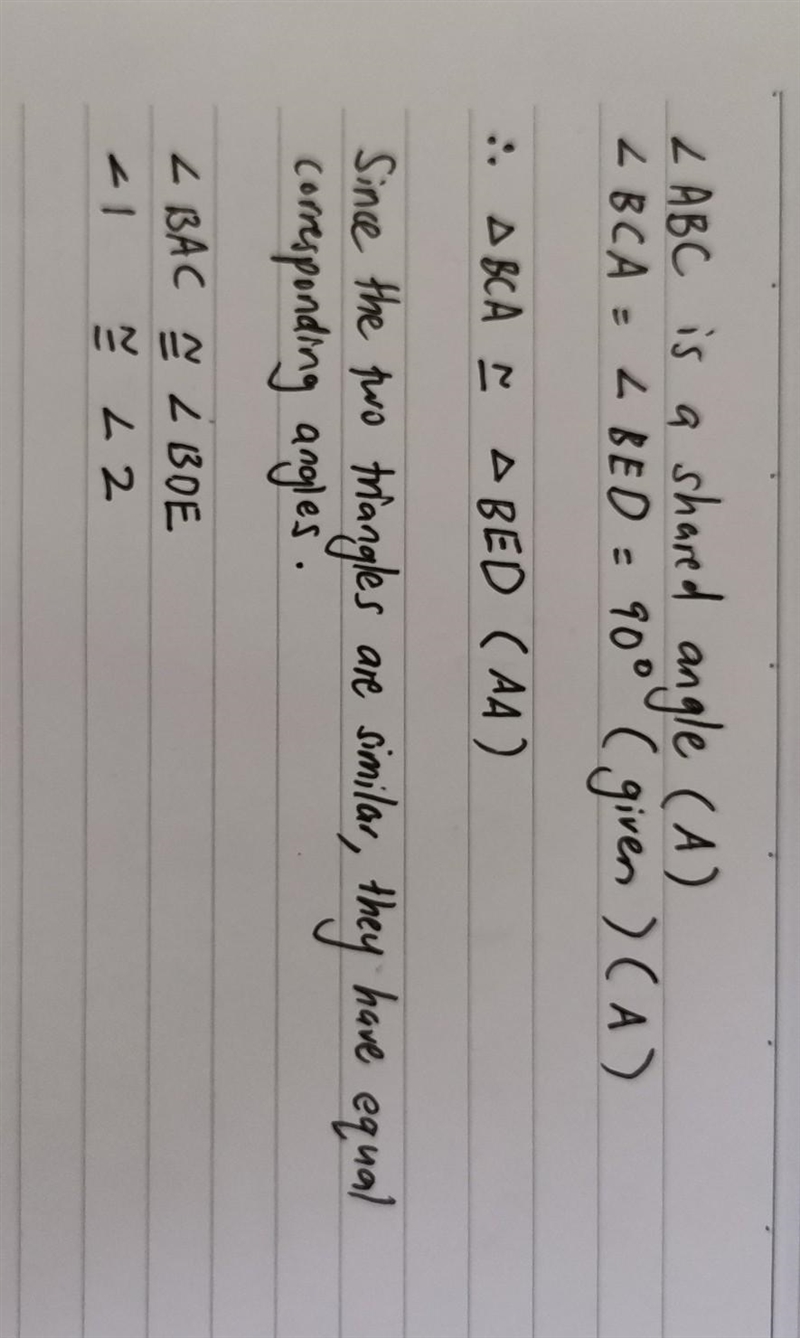 ∠ABC is a shared angle (A)
∠BCA = ∠BED = 90° (given) (A)
∴ △BCA ≅ △BED (AA)
Since the two triangles are similar, they have equal
corresponding angles.
∠BAC ≅ ∠BDE
∠1 ≅ ∠2